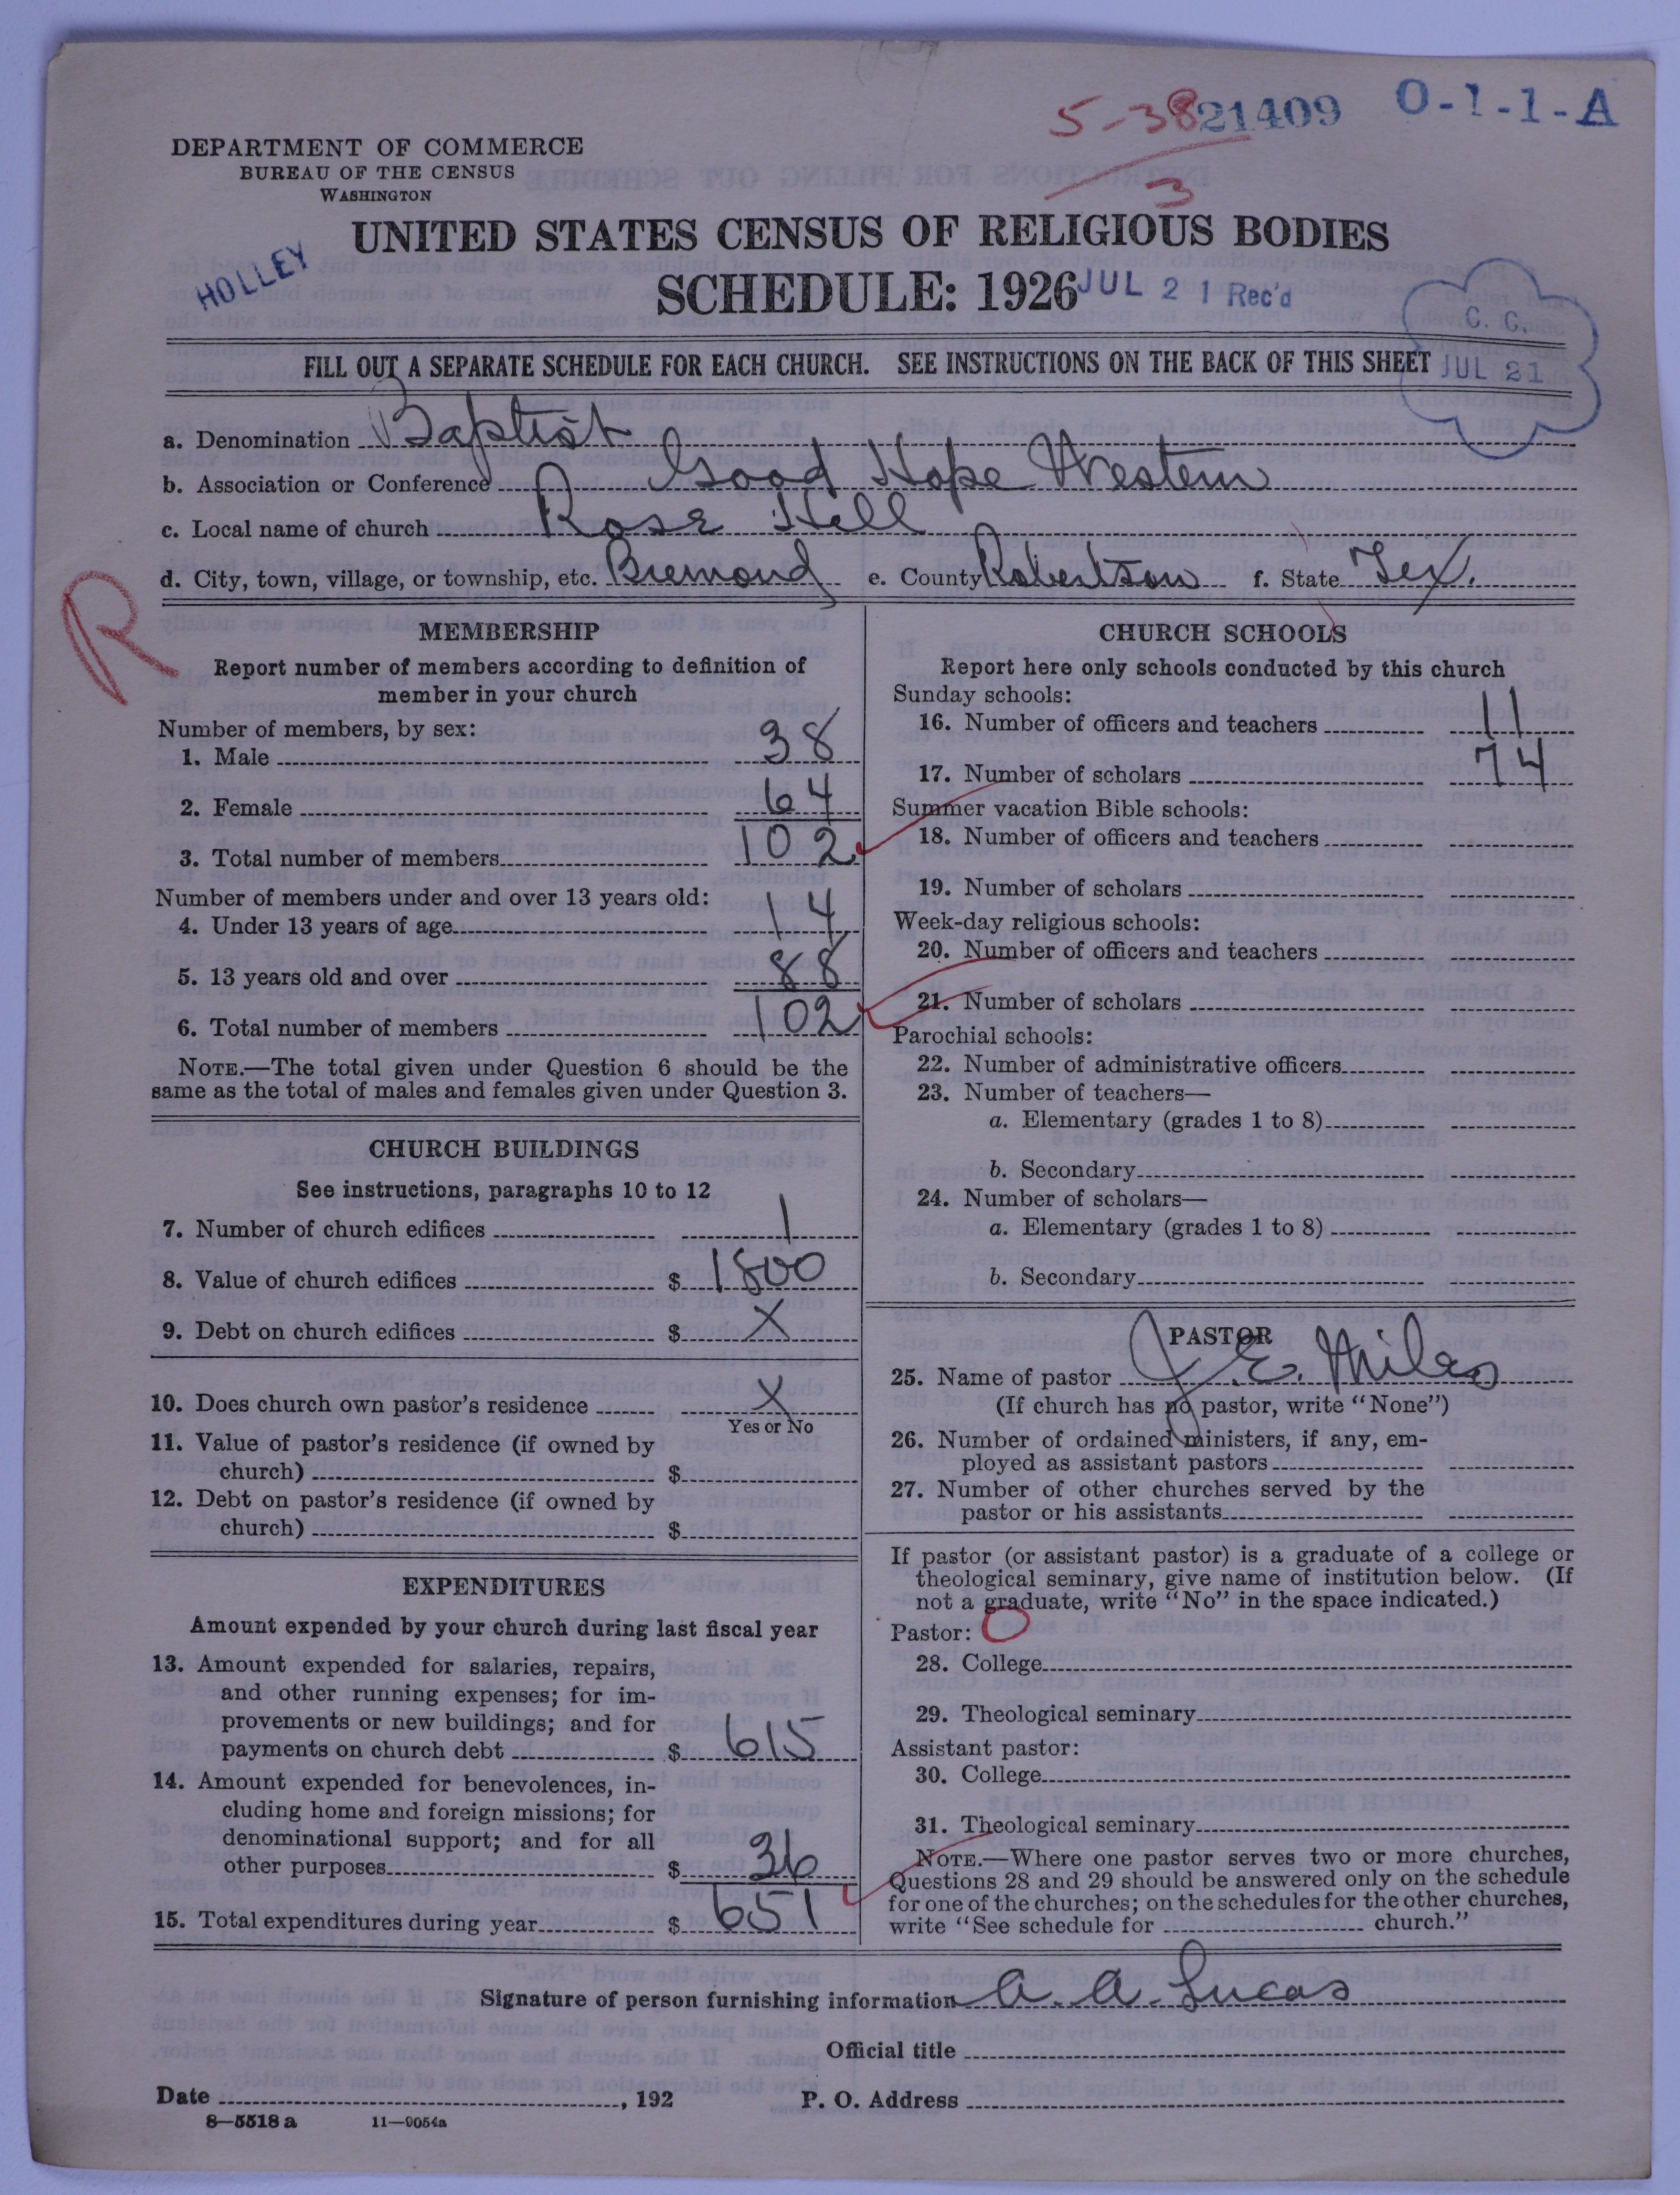 5-38 21409 O-1-1-A
3
DEPARTMENT OF COMMERCE
BUREAU OF THE CENSUS
WASHINGTON
UNITED STATES CENSUS OF RELIGIOUS BODIES
HOLLEY
SCHEDULE: 1926
JUL 21 Rec'd
C. C.
JUL 21
FILL OUT A SEPARATE SCHEDULE FOR EACH CHURCH. SEE INSTRUCTIONS ON THE BACK OF THIS SHEET
a. Denomination Baptist
b. Association or Conference Good Hope Western
c. Local name of church Rose Hill
d. City, town, village, or township, etc. Bremond e. County Robertson f. State Tex.
R
MEMBERSHIP
Report number of members according to definition of
member in your church
Number of members, by sex:
1. Male 38
2. Female 64
3. Total number of members 102
Number of members under and over 13 years old:
4. Under 13 years of age 14
5. 13 years old and over 88
6. Total number of members 102
NOTE.—The total given under Question 6 should be the
same as the total of males and females given under Question 3.
CHURCH BUILDINGS
See instructions, paragraphs 10 to 12
7. Number of church edifices 1
8. Value of church edifices $ 1800
9. Debt on church edifices $ X
10. Does church own pastor's residence X
Yes or No
11. Value of pastor's residence (if owned by
church) $
12. Debt on pastor's residence (if owned by
church) $
EXPENDITURES
Amount expended by your church during last fiscal year
13. Amount expended for salaries, repairs,
and other running expenses; for im-
provements or new buildings; and for
payments on church debt $ 615
14. Amount expended for benevolences, in-
cluding home and foreign missions; for
denominational support; and for all
other purposes $ 36
15. Total expenditures during year $ 651
CHURCH SCHOOLS
Report here only schools conducted by this church
Sunday schools:
16. Number of officers and teachers 11
17. Number of scholars 74
Summer vacation Bible schools:
18. Number of officers and teachers
19. Number of scholars
Week-day religious schools:
20. Number of officers and teachers
21. Number of scholars
Parochial schools:
22. Number of administrative officers
23. Number of teachers—
a. Elementary (grades 1 to 8)
b. Secondary
24. Number of scholars—
a. Elementary (grades 1 to 8)
b. Secondary
PASTOR
25. Name of pastor J. E. Miles
(If church has no pastor, write "None")
26. Number of ordained ministers, if any, em-
ployed as assistant pastors
27. Number of other churches served by the
pastor or his assistants
If pastor (or assistant pastor) is a graduate of a college or
theological seminary, give name of institution below. (If
not a graduate, write "No" in the space indicated.)
Pastor: O
28. College
29. Theological seminary
Assistant pastor:
30. College
31. Theological seminary
NOTE.—Where one pastor serves two or more churches,
Questions 28 and 29 should be answered only on the schedule
for one of the churches; on the schedules for the other churches,
write "See schedule for church."
Signature of person furnishing information A. A. Lucas
Official title
Date , 192 P. O. Address
8—5518 a 11—9054a